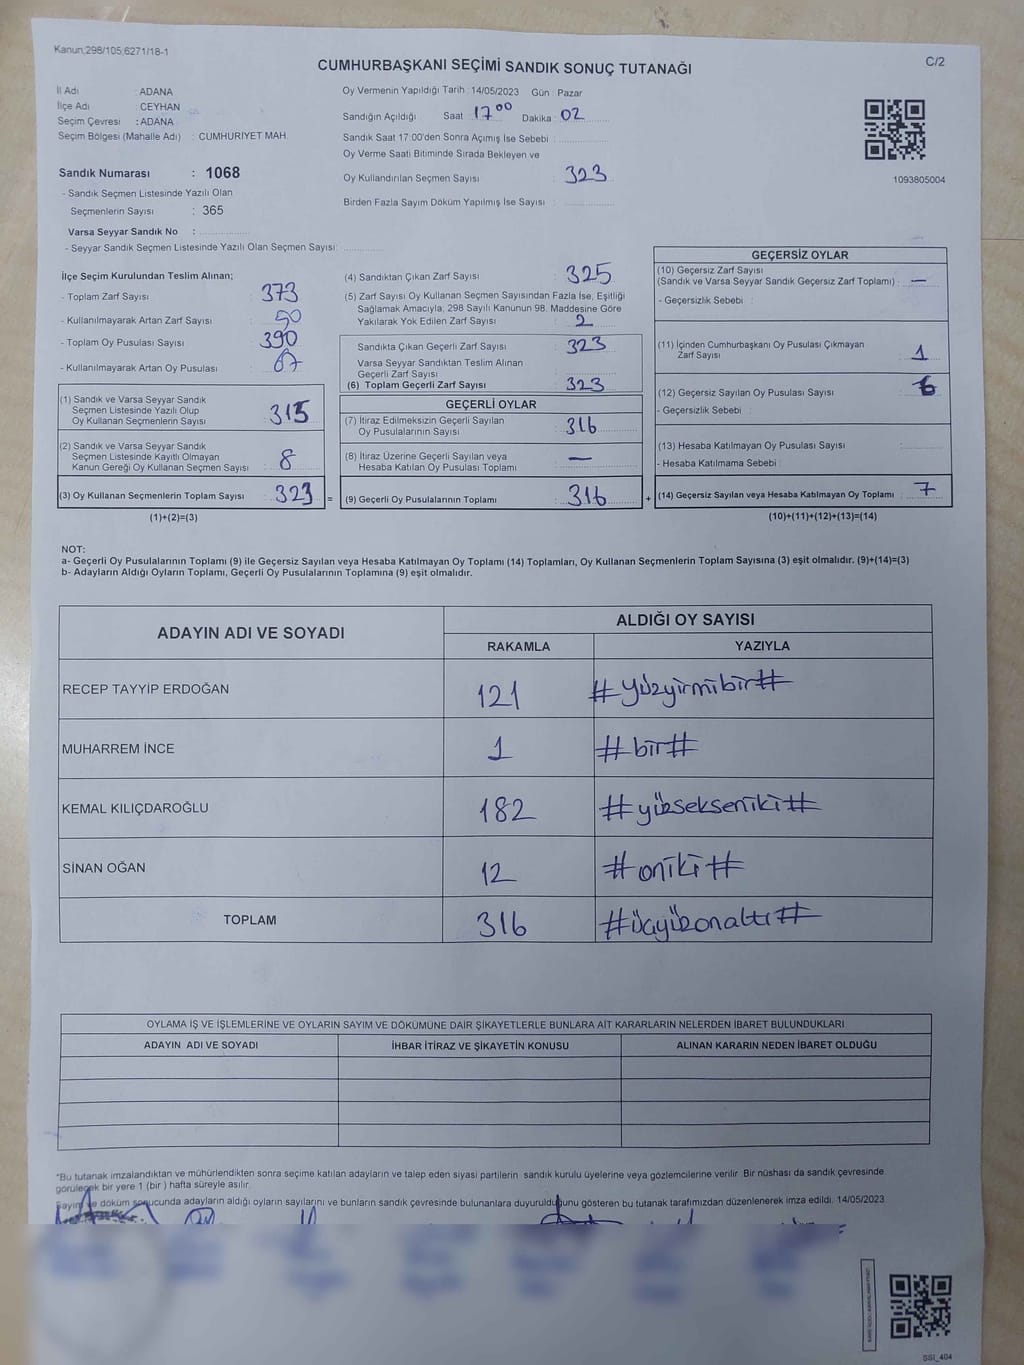 Kanun;298/105;6271/18-1
C/2
CUMHURBAŞKANI SEÇİMİ SANDIK SONUÇ TUTANAĞI
İl Adı : ADANA
İlçe Adı : CEYHAN
Seçim Çevresi : ADANA
Seçim Bölgesi (Mahalle Adı) : CUMHURİYET MAH.
Sandık Numarası : 1068
- Sandık Seçmen Listesinde Yazılı Olan
Seçmenlerin Sayısı : 365
Varsa Seyyar Sandık No :
- Seyyar Sandık Seçmen Listesinde Yazılı Olan Seçmen Sayısı:
Oy Vermenin Yapıldığı Tarih : 14/05/2023 Gün : Pazar
Sandığın Açıldığı Saat 17 00 Dakika : 02
Sandık Saat 17:00'den Sonra Açımış İse Sebebi :
Oy Verme Saati Bitiminde Sırada Bekleyen ve
Oy Kullandırılan Seçmen Sayısı : 323
Birden Fazla Sayım Döküm Yapılmış İse Sayısı :
1093805004
İlçe Seçim Kurulundan Teslim Alınan;
- Toplam Zarf Sayısı : 373
- Kullanılmayarak Artan Zarf Sayısı : 50
- Toplam Oy Pusulası Sayısı : 390
- Kullanılmayarak Artan Oy Pusulası : 67
(1) Sandık ve Varsa Seyyar Sandık
Seçmen Listesinde Yazılı Olup
Oy Kullanan Seçmenlerin Sayısı : 315
(2) Sandık ve Varsa Seyyar Sandık
Seçmen Listesinde Kayıtlı Olmayan
Kanun Gereği Oy Kullanan Seçmen Sayısı : 8
(3) Oy Kullanan Seçmenlerin Toplam Sayısı : 323
(1)+(2)=(3)
=
(4) Sandıktan Çıkan Zarf Sayısı : 325
(5) Zarf Sayısı Oy Kullanan Seçmen Sayısından Fazla İse, Eşitliği
Sağlamak Amacıyla; 298 Sayılı Kanunun 98. Maddesine Göre
Yakılarak Yok Edilen Zarf Sayısı : 2
Sandıkta Çıkan Geçerli Zarf Sayısı : 323
Varsa Seyyar Sandıktan Teslim Alınan
Geçerli Zarf Sayısı :
(6) Toplam Geçerli Zarf Sayısı : 323
GEÇERLİ OYLAR
(7) İtiraz Edilmeksizin Geçerli Sayılan
Oy Pusulalarının Sayısı : 316
(8) İtiraz Üzerine Geçerli Sayılan veya
Hesaba Katılan Oy Pusulası Toplamı : —
(9) Geçerli Oy Pusulalarının Toplamı : 316
+
GEÇERSİZ OYLAR
(10) Geçersiz Zarf Sayısı
(Sandık ve Varsa Seyyar Sandık Geçersiz Zarf Toplamı) : —
- Geçersizlik Sebebi :
(11) İçinden Cumhurbaşkanı Oy Pusulası Çıkmayan
Zarf Sayısı : 1
(12) Geçersiz Sayılan Oy Pusulası Sayısı : 6
- Geçersizlik Sebebi :
(13) Hesaba Katılmayan Oy Pusulası Sayısı :
- Hesaba Katılmama Sebebi :
(14) Geçersiz Sayılan veya Hesaba Katılmayan Oy Toplamı : 7
(10)+(11)+(12)+(13)=(14)
NOT:
a- Geçerli Oy Pusulalarının Toplamı (9) ile Geçersiz Sayılan veya Hesaba Katılmayan Oy Toplamı (14) Toplamları, Oy Kullanan Seçmenlerin Toplam Sayısına (3) eşit olmalıdır. (9)+(14)=(3)
b- Adayların Aldığı Oyların Toplamı, Geçerli Oy Pusulalarının Toplamına (9) eşit olmalıdır.
ADAYIN ADI VE SOYADI
ALDIĞI OY SAYISI
RAKAMLA YAZIYLA
RECEP TAYYİP ERDOĞAN 121 #yüzyirmibir#
MUHARREM İNCE 1 #bir#
KEMAL KILIÇDAROĞLU 182 #yüzsekseniki#
SİNAN OĞAN 12 #oniki#
TOPLAM 316 #üçyüzonaltı#
OYLAMA İŞ VE İŞLEMLERİNE VE OYLARIN SAYIM VE DÖKÜMÜNE DAİR ŞİKAYETLERLE BUNLARA AİT KARARLARIN NELERDEN İBARET BULUNDUKLARI
ADAYIN ADI VE SOYADI İHBAR İTİRAZ VE ŞİKAYETİN KONUSU ALINAN KARARIN NEDEN İBARET OLDUĞU
*Bu tutanak imzalandıktan ve mühürlendikten sonra seçime katılan adayların ve talep eden siyasi partilerin sandık kurulu üyelerine veya gözlemcilerine verilir. Bir nüshası da sandık çevresinde
görülecek bir yere 1 (bir ) hafta süreyle asılır.
Sayım ve döküm sonucunda adayların aldığı oyların sayılarını ve bunların sandık çevresinde bulunanlara duyurulduğunu gösteren bu tutanak tarafımızdan düzenlenerek imza edildi. 14/05/2023
SSI_404